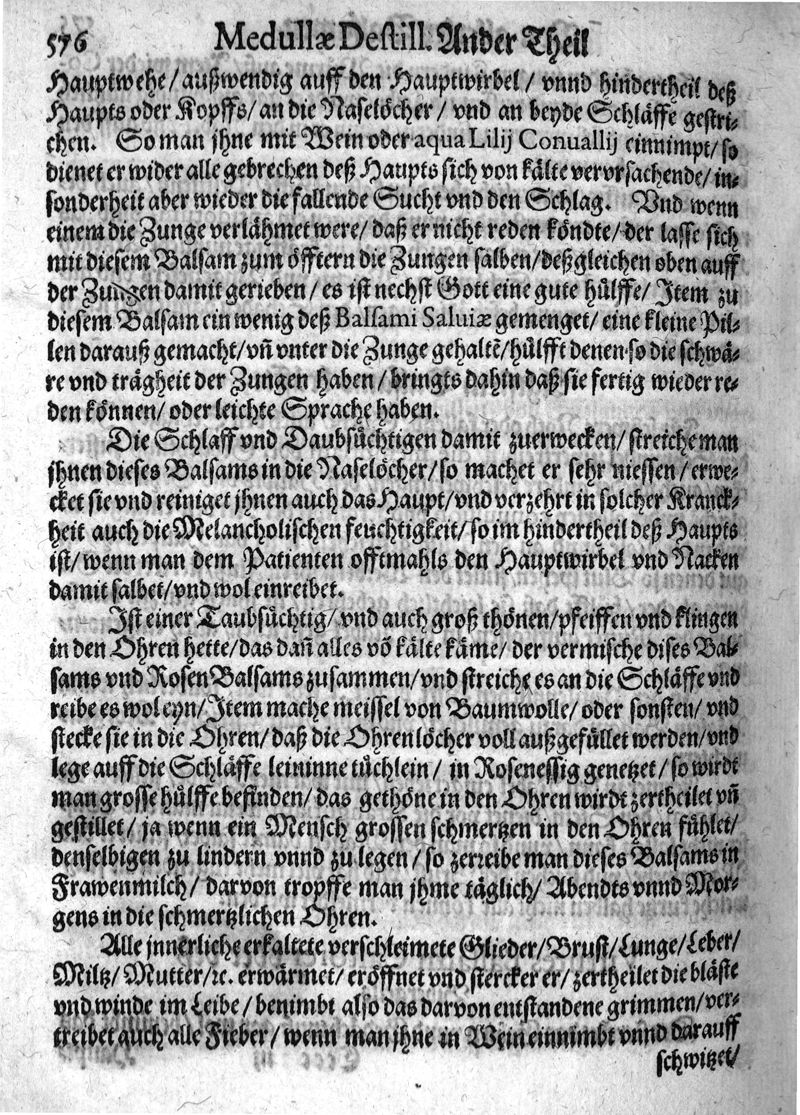 576 Medullæ Destill. Ander Theil
Hauptwehe/ außwendig auff den Hauptwirbel/ vnnd hindertheil deß
Haupts oder Kopffs/ an die Naselöcher/ vnd an beyde Schläffe gestri-
chen. So man jhne mit Wein oder aqua Lilij Conuallij einnimpt/ so
dienet er wider alle gebrechen deß Haupts sich von kälte vervrsachende/ in-
sonderheit aber wieder die fallende Sucht vnd den Schlag. Vnd wenn
einem die Zunge verlähmet were/ daß er nicht reden köndte/ der lasse sich
mit diesem Balsam zum öfftern die Zungen salben/ deßgleichen oben auff
der Zungen damit gerieben/ es ist nechst Gott eine gute hülffe/ Item zu
diesem Balsam ein wenig deß Balsami Saluiæ gemenget/ eine kleine Pil-
len darauß gemacht/ vñ vnter die Zunge gehaltẽ/ hülfft denen so die schwä-
re vnd trägheit der Zungen haben/ bringts dahin daß sie fertig wieder re-
den können/ oder leichte Sprache haben.
Die Schlaff vnd Daubsüchtigen damit zuerwecken/ streiche man
jhnen dieses Balsams in die Naselöcher/ so machet er sehr niessen/ erwe-
cket sie vnd reiniget jhnen auch das Haupt/ vnd verzehrt in solcher Kranck-
heit auch die Melancholischen feuchtigkeit/ so im hindertheil deß Haupts
ist/ wenn man dem Patienten offtmahls den Hauptwirbel vnd Nacken
damit salbet/ vnd wol einreibet.
Ist einer Taubsüchtig/ vnd auch groß thönen/ pfeiffen vnd klingen
in den Ohren hette/ das dañ alles võ kälte käme/ der vermische dises Bal-
sams vnd Rosen Balsams zusammen/ vnd streiche es an die Schläffe vnd
reibe es wol eyn/ Item mache meissel von Baumwolle/ oder sonsten/ vnd
stecke sie in die Ohren/ daß die Ohrenlöcher voll außgefüllet werden/ vnd
lege auff die Schläffe leininne tüchlein/ in Rosenessig genetzet/ so wirdt
man grosse hülffe befinden/ das gethöne in den Ohren wirdt zertheilet vñ
gestillet/ ja wenn ein Mensch grossen schmertzen in den Ohren fühlet/
denselbigen zu lindern vnnd zu legen/ so zerreibe man dieses Balsams in
Frawenmilch/ darvon tropffe man jhme täglich/ Abendts vnnd Mor-
gens in die schmertzlichen Ohren.
Alle jnnerliche erkaltete verschleimete Glieder/ Brust/ Lunge/ Leber/
Miltz/ Mutter/ ꝛc. erwärmet/ eröffnet vnd stercker er/ zertheilet die bläste
vnd winde im Leibe/ benimbt also das darvon entstandene grimmen/ ver-
treibet auch alle Fieber/ wenn man jhne in Wein einnimbt vnnd darauff
schwitzet/